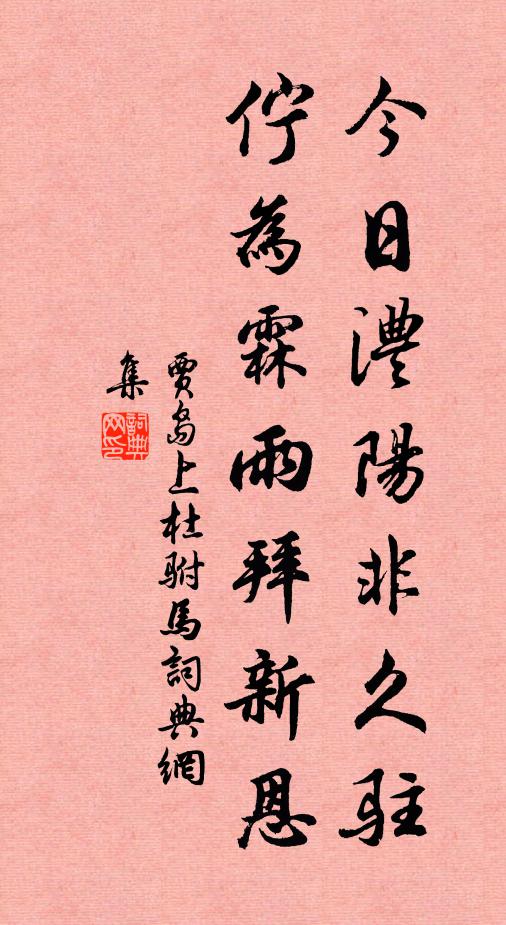 今日澧陽非久駐
佇為霖雨拜新恩
賈島上杜駙馬詞典網
集
詞典
网印